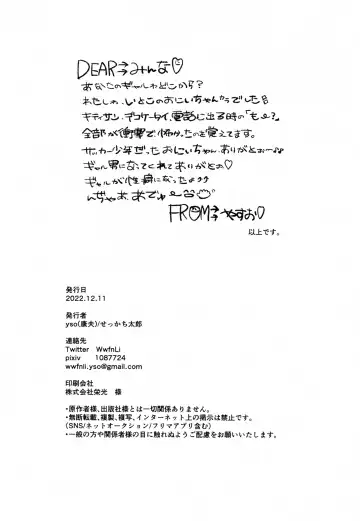 DEAR→みんな♡
あなたのギャルわどこから?
わたしわ、いとこのおにいちゃんからでした8
キティサン、デコケータイ、電話に出る時の「も〜?」
全部が衝撃で、怖かったのを覚えてます。
サッカー少年だったおにいちゃん、ありがとぉ〜
ギャル男になってくれてありがとぉ♡
ギャルが性癖になったよ
んぢゃぁ、あでゅ〜
FROM→やすお♡
以上です。
発行日
2022.12.11
発行者
yso(康夫)/せっかち太郎
連絡先
Twitter WwfnLi
pixiv 1087724
wwfnli.yso@gmail.com
印刷会社
株式会社栄光 様
・原作者様、出版社様とは一切関係ありません。
・無断転載、複製、複写、インターネット上の掲示は禁止です。
(SNS/ネットオークション/フリマアプリ含む)
・一般の方や関係者様の目に触れぬようご配慮をお願いいたします。